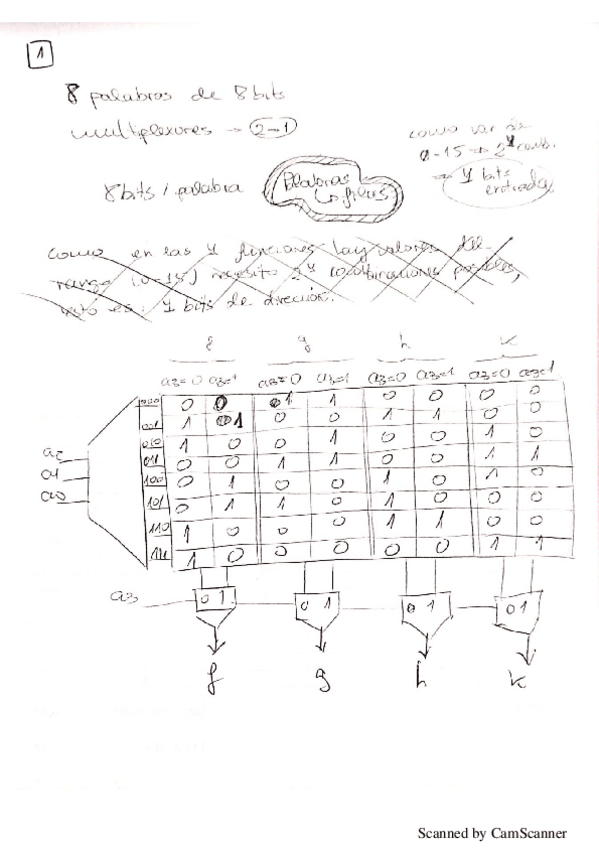 1
8 palabras de 8 bits
multiplexores → 2-1
como van de
0-15 → 2⁴ comb.
→ 4 bits
entrada
8 bits / palabra
Palabras
↳ filas
como en las 4 funciones hay valores del
rango (0-15) necesito 2⁴ combinaciones posibles,
esto es: 4 bits de dirección.
f g h k
a3=0 a3=1 a3=0 a3=1 a3=0 a3=1 a3=0 a3=1
000 0 0 1 1 0 0 0 0
001 1 1 0 0 1 1 0 0
010 1 0 0 1 0 0 1 0
011 0 0 1 1 0 0 1 1
100 0 1 0 0 1 0 1 0
101 0 1 1 0 1 0 0 0
110 1 0 0 0 1 1 0 0
111 1 0 0 0 0 0 1 1
a2
a1
a0
a3 0 1 0 1 0 1 0 1
f g h k
Scanned by CamScanner